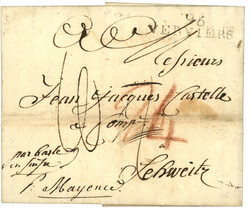 96
VERVIERS
Messieurs
Jean Jacques Castelle
& Comp.
à
Schweitz
par basle
en suisse
P. Mayence